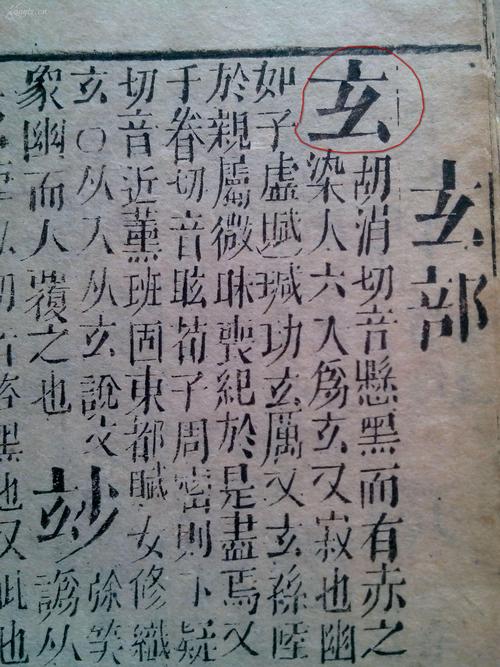 玄部
玄 胡消切音懸黑而有赤之
染人六入爲玄又寂也幽
如子虛賦瑊玏玄厲又玄孫陸
於親屬微昧喪紀於是盡焉又
于眷切音眩荀子周密則下疑
切音近薰班固東都賦女修織
玄〇从入从玄說文
象幽而人覆之也 玅 徐笑
譌从